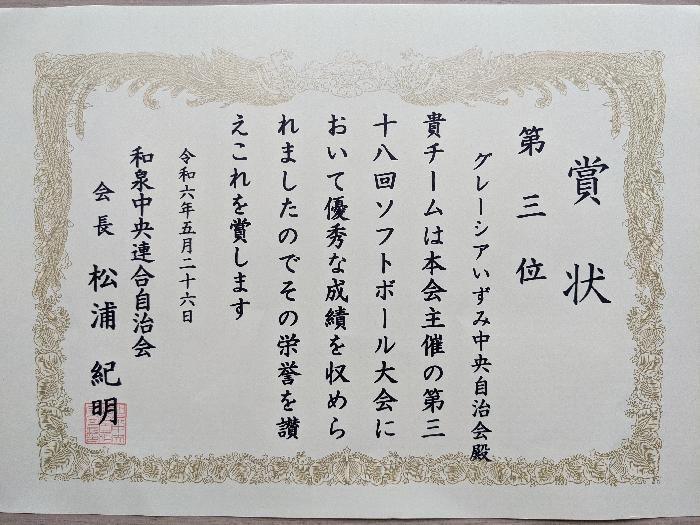 賞状
第三位
グレーシアいずみ中央自治会殿
貴チームは本会主催の第三
十八回ソフトボール大会に
おいて優秀な成績を収めら
れましたのでその栄誉を讃
えこれを賞します
令和六年五月二十六日
和泉中央連合自治会
会長 松浦 紀明